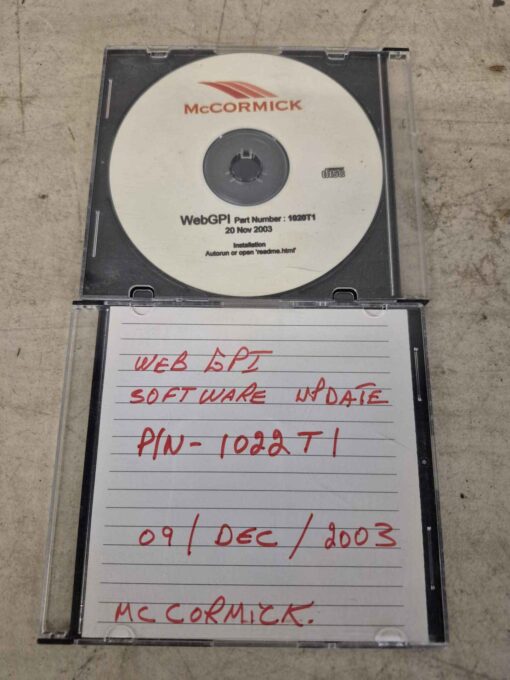 McCORMICK
WebGPI Part Number : 1020T1
20 Nov 2003
Installation
Autorun or open 'readme.html'
WEB GPI
SOFTWARE UPDATE
P/N - 1022T1
09 / DEC / 2003
MCCORMICK.